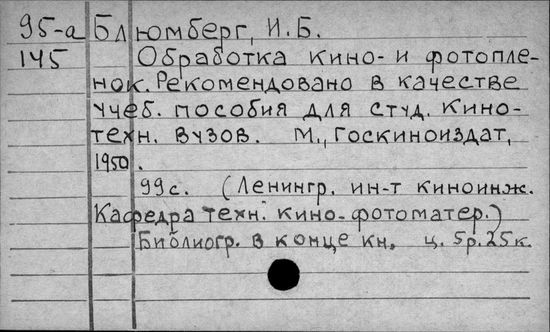 95-а Блюмберг, И.Б.
145 Обработка кино- и фотопле-
нок. Рекомендовано в качестве
учеб. пособия для студ. кино-
техн. вузов. М., Госкиноиздат,
1950.
99с. (Ленингр. ин-т киноинж.
Кафедра техн. кино-фотоматер.)
Библиогр. в конце кн. ц. 5р.25к.